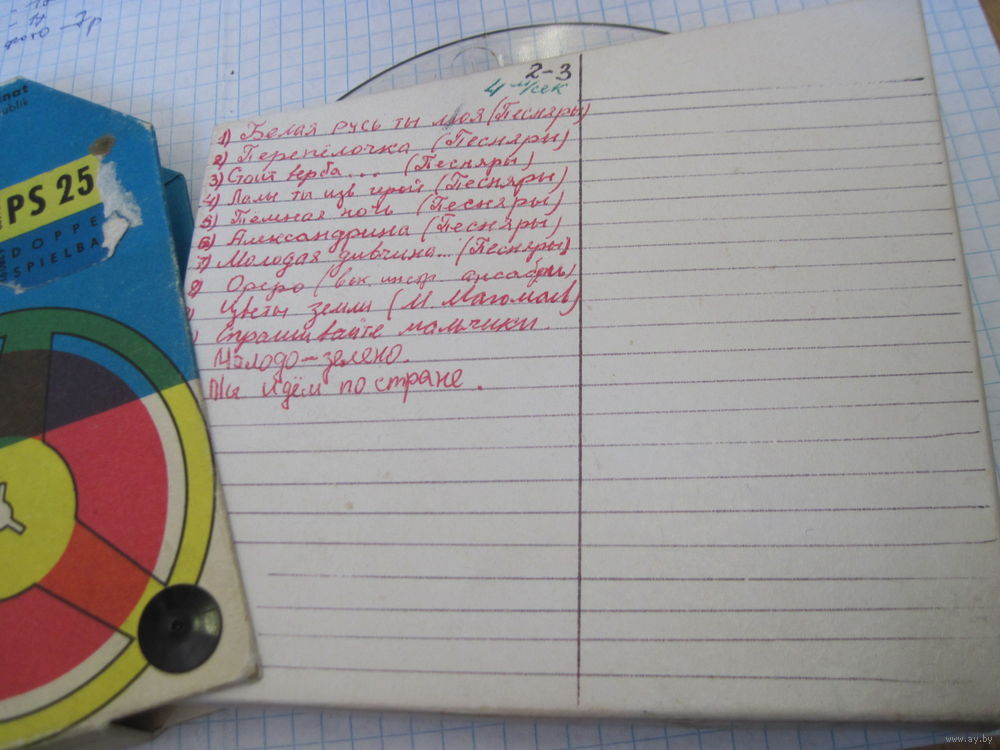 - 17
фото - 7р
nat
publik
PS 25
DOPPE
SPIELBA
2-3
4 м/сек
1) Белая русь ты моя (Песняры)
2) Перепёлочка (Песняры)
3) Стоит верба... (Песняры)
4) ты (Песняры)
5) Тёмная ночь (Песняры)
6) Александрина (Песняры)
7) Молодая дивчина... (Песняры)
8) Орэра (вок. инстр. ансамбль)
Цветы земли (М Магомаев)
Спрашивайте мальчики.
Молодо-зелено.
Мы идём по стране.
www.ay.by